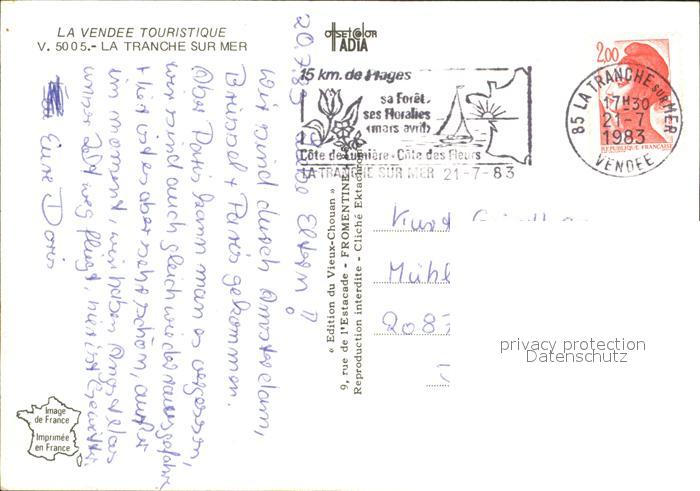 LA VENDEE TOURISTIQUE
V. 5005.- LA TRANCHE SUR MER
offset color
IADIA
15 km. de Plages
sa Forêt.
ses Floralies
(mars avril)
Côte de Lumière - Côte des Fleurs
LA TRANCHE SUR MER 21-7-83
2,00
REPUBLIQUE FRANCAISE
85 LA TRANCHE SUR MER
17H30
21-7
1983
VENDEE
20.7.83
Liebe Eltern!
Wir sind durch Amsterdam,
Brüssel + Paris gekommen.
Aber Paris kann man vergessen,
wir sind auch gleich wieder rausgefahren
Hier ist es aber sehr schön, außer
im moment, wir haben Angst das
unser Zelt weg fliegt, hier ist Gewitter.
Eure Doris
« Edition du Vieux-Chouan »
9, rue de l'Estacade - FROMENTINE
Reproduction interdite - Cliché Ektachrome
Mühl
208
privacy protection
Datenschutz
Image
de France
Imprimée
en France